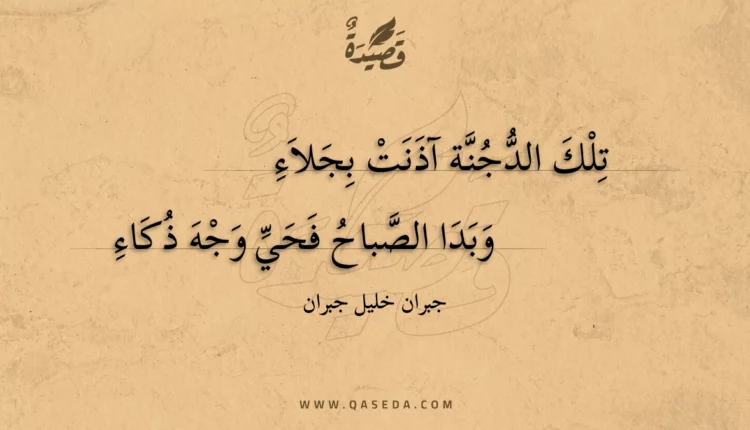 قَصِيْدَةٌ
تِلْكَ الدُّجُنَّة آذَنَتْ بِجَلاَءِ
وَبَدَا الصَّباحُ فَحَيِّ وَجْهَ ذُكَاءِ
جبران خليل جبران
WWW.QASEDA.COM